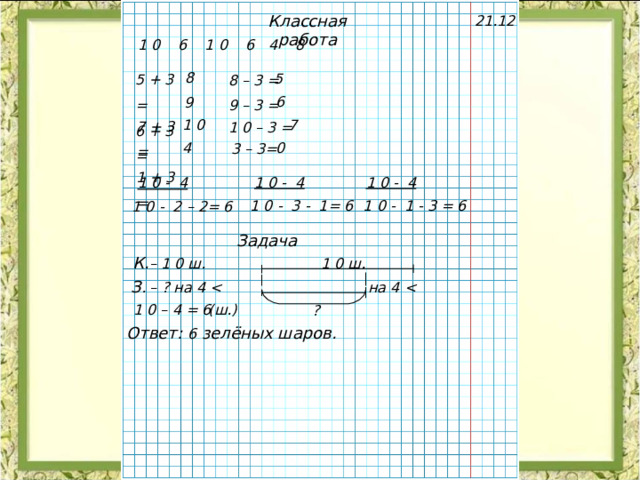 Классная 21.12
работа
1 0 6 1 0 6 4 8
5 + 3 = 8 8 – 3 = 5
6 + 3 = 9 9 – 3 = 6
7 + 3 = 1 0 1 0 – 3 = 7
1 + 3 = 4 3 – 3= 0
1 0 - 4 1 0 - 4 1 0 - 4
1 0 - 2 – 2= 6 1 0 - 3 - 1= 6 1 0 - 1 - 3 = 6
Задача
К.– 1 0 ш. 1 0 ш.
З. – ? на 4 < на 4 <
1 0 – 4 = 6 (ш.) ?
Ответ: 6 зелёных шаров.